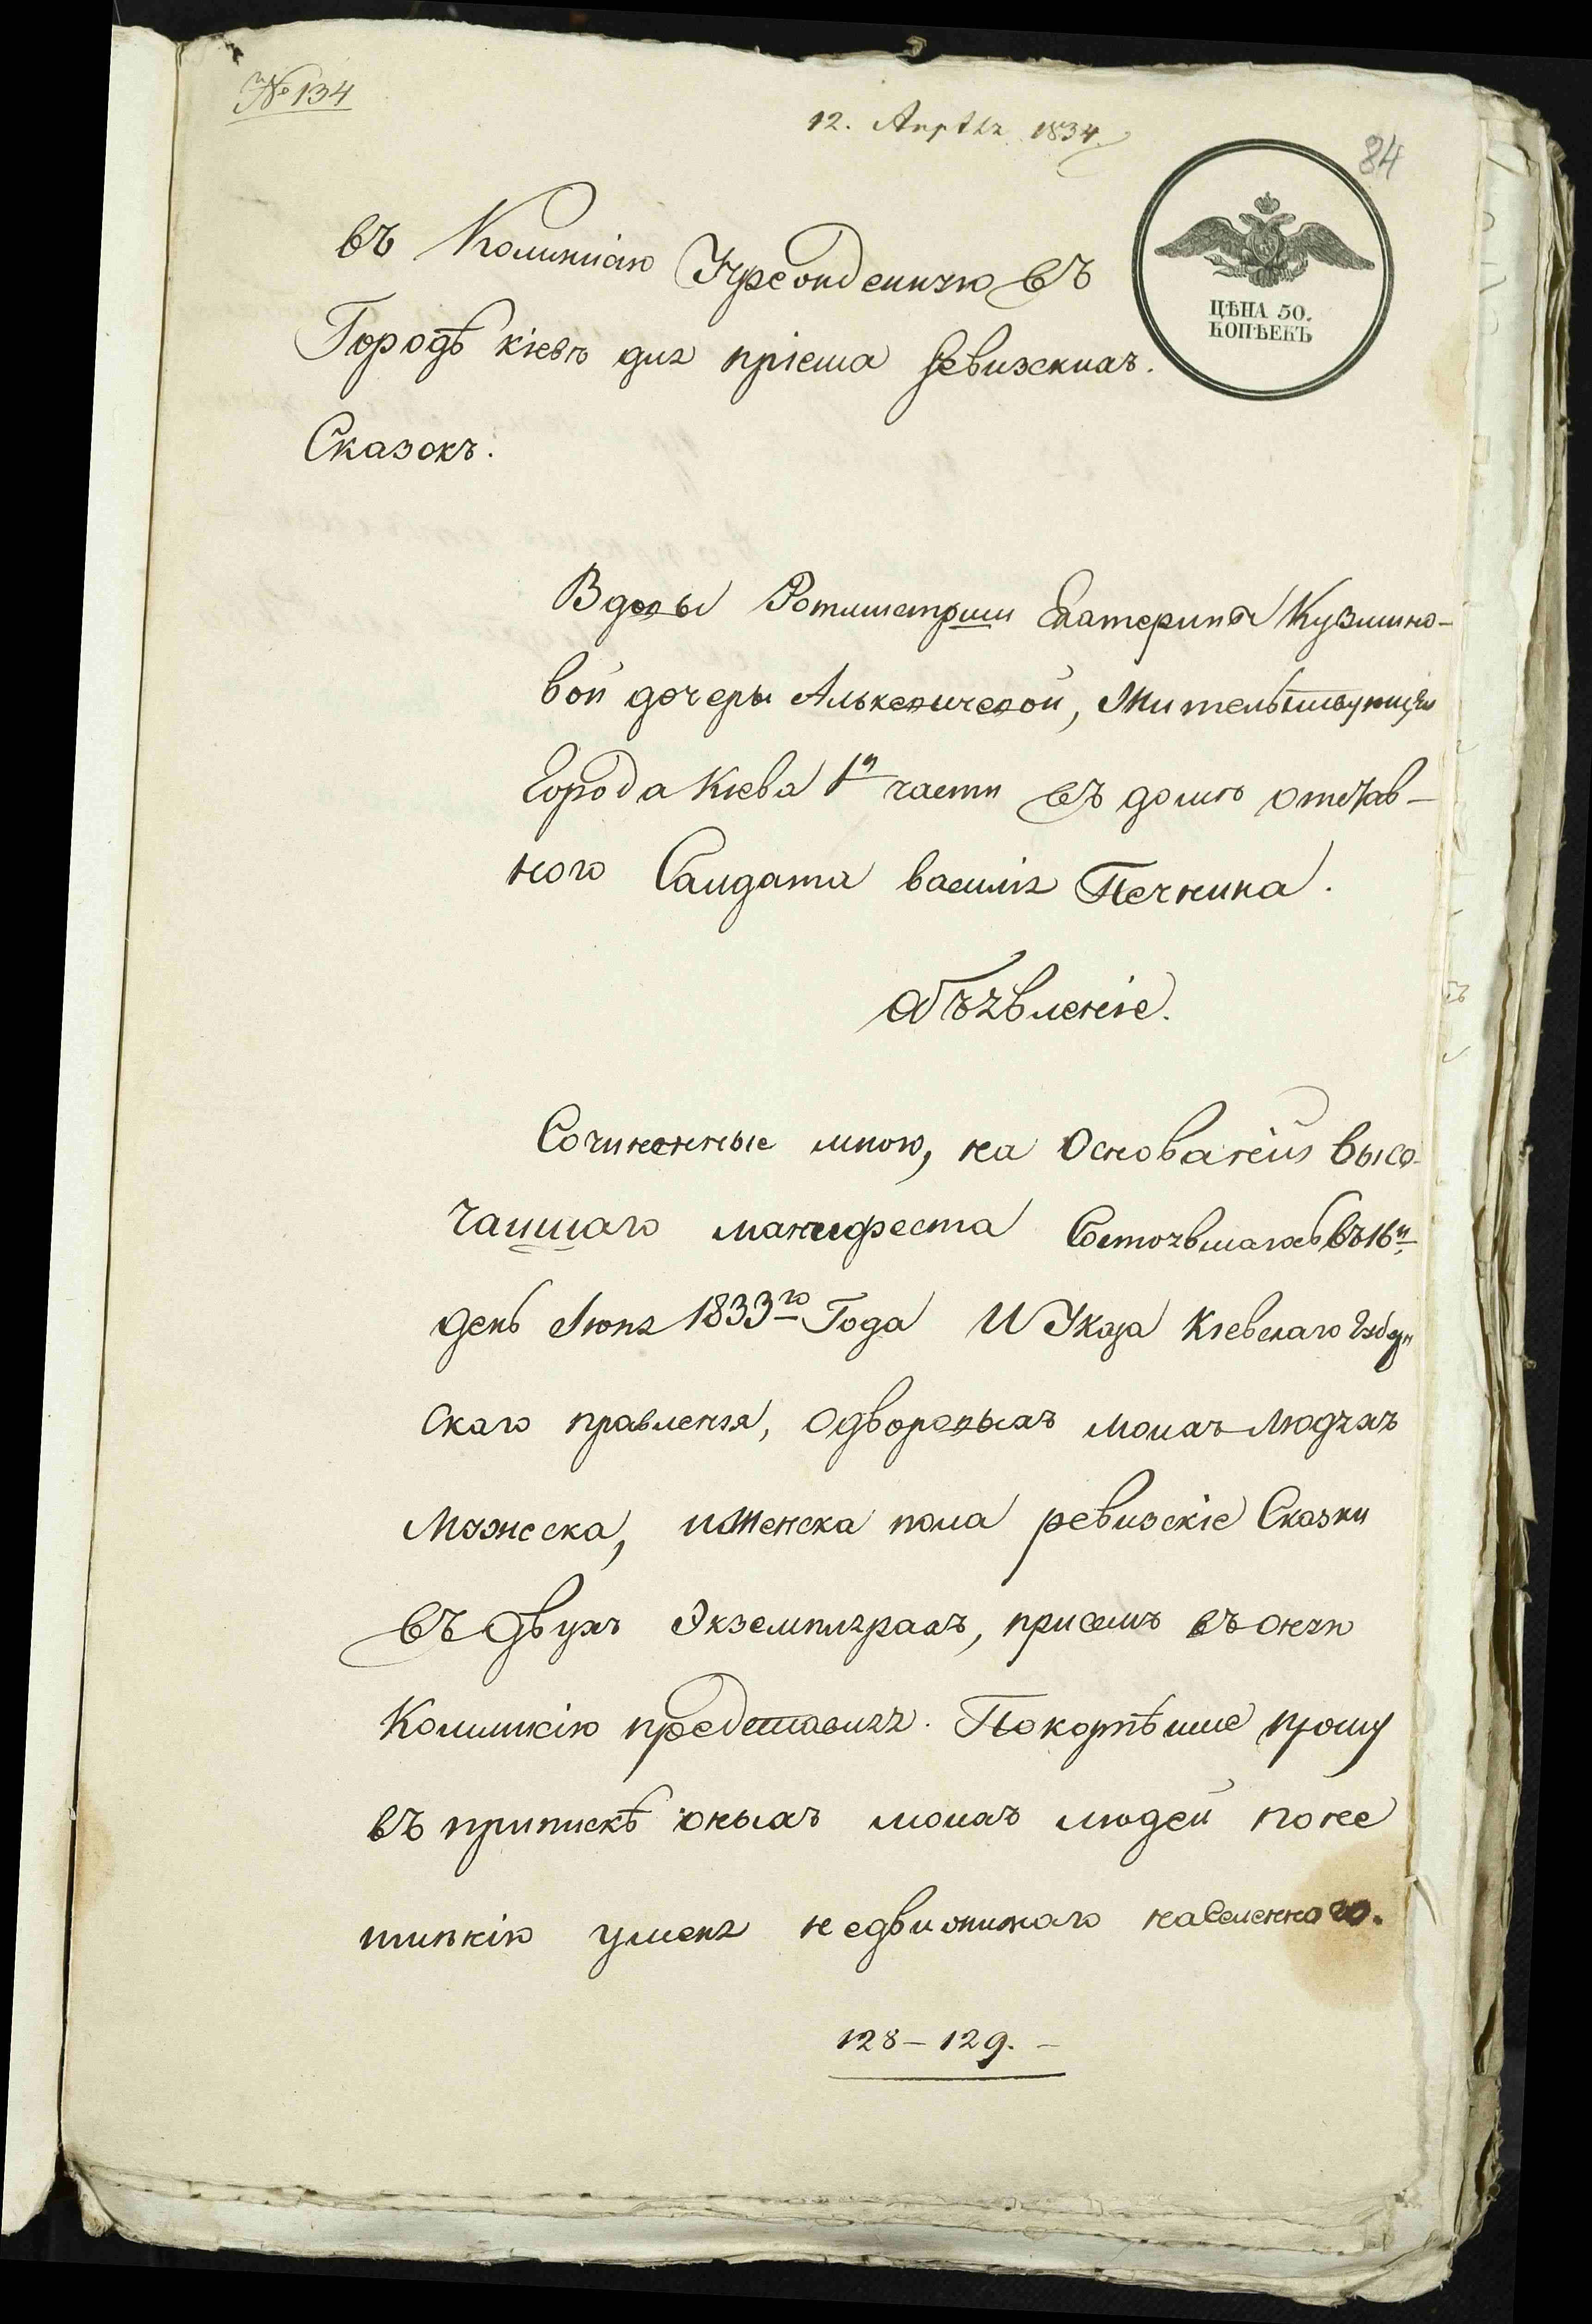 № 134
12. Апрѣля 1834.
84
ЦѢНА 50.
КОПѢЕКЪ
въ Комисию Учрежденную въ
Городѣ Кіевѣ для пріема Ревизскихъ.
Сказокъ.
Вдовы Ротмистрши Екатерины Кузмино-
вой дочеры, Жительствующія
Города Кіева 1й части въ домѣ отстав-
ного Салдата василія Печкина.
Объявленіе.
Сочиненные мною, на Основаніи высо-
чаишаго манифеста Состоявшагось въ 16й
день Іюня 1833го Года И Указа Кіевскаго Губерн
скаго правленія, Одворовыхъ моихъ Людяхъ
Мужеска, иженска пола ревизскіе Сказки
въ двухъ Экземплярахъ, присемъ въ оную
Комиисію представляя. Покорнѣише прошу
въ припискѣ оныхъ моихъ людей по не
имѣнію уменя недвижимаго населенного.
128 - 129. -